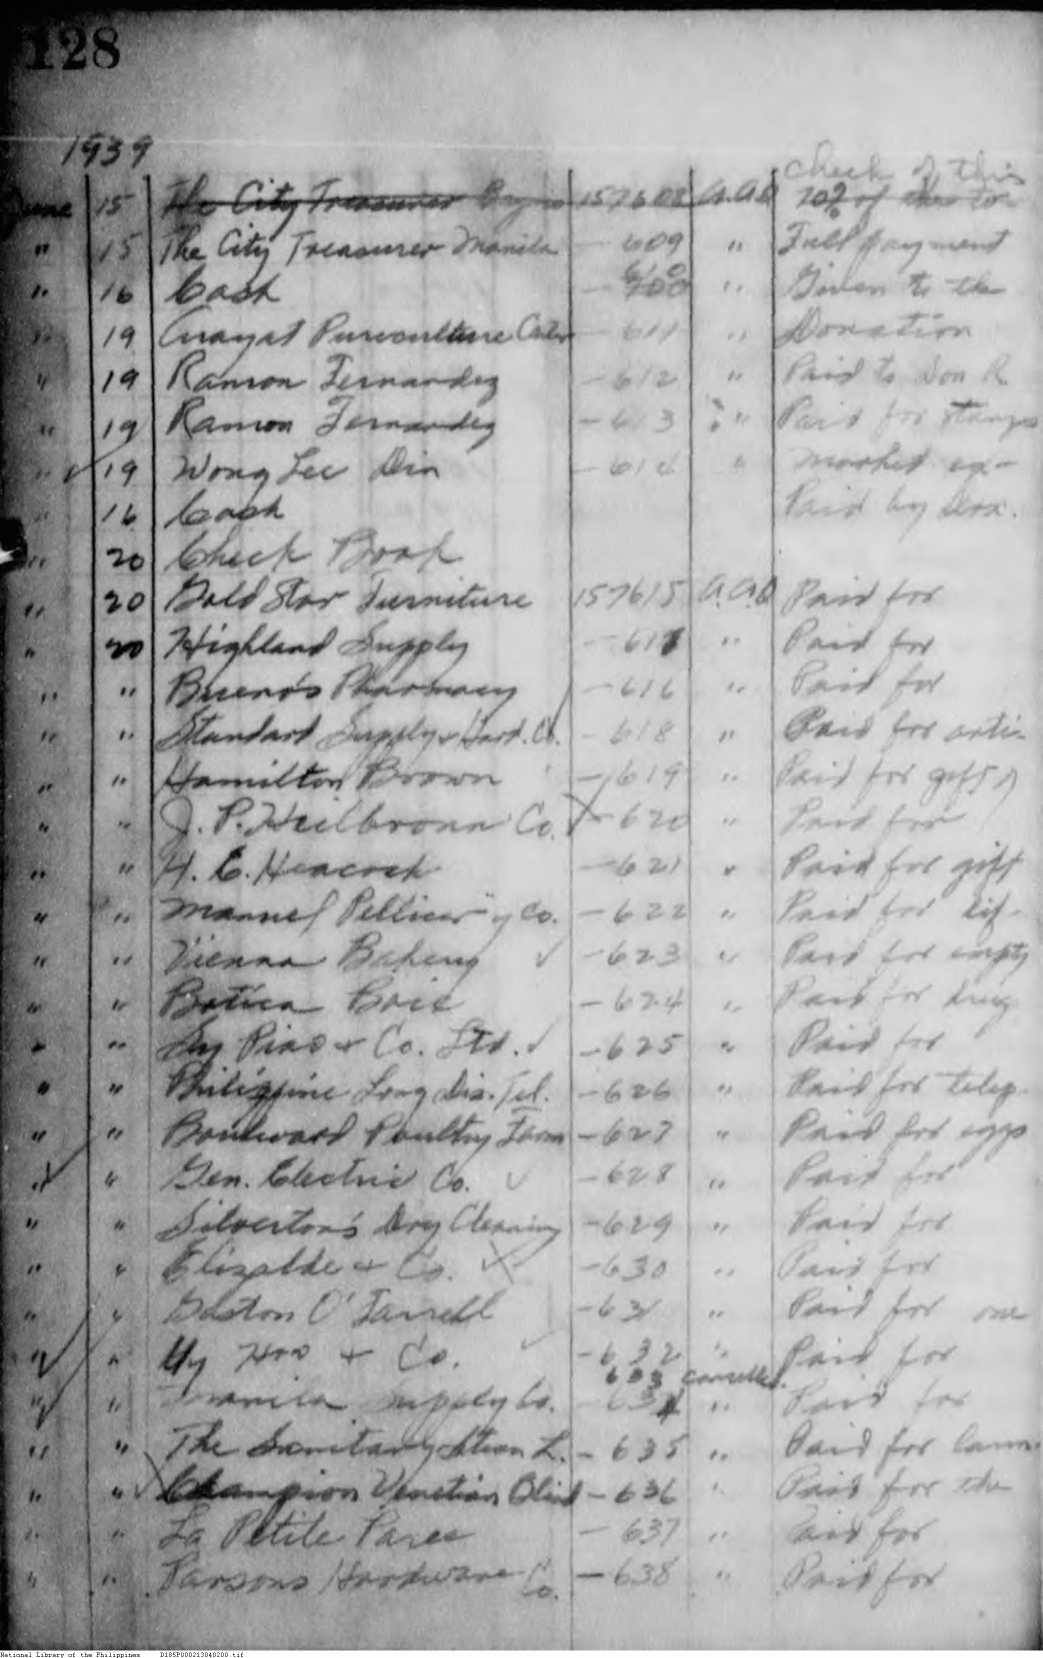 128
1939
check of this
June 15 The City Treasurer 157608 A.A.O 70% of
" 15 The City Treasurer Manila - 609 " Full payment
610
" 16 Cash - 700 " Given to the
" 19 Puericulture - 611 " Donation
" 19 Ramon Fernandez - 612 " Paid to Don R
" 19 Ramon Fernandez - 613 " Paid for stamps
" 19 Wong Lee Din - 614 " Market ex-
" 16 Cash Paid by
" 20 Check Book
" 20 Gold Star Furniture 157615 A.A.O Paid for
" 20 Highland Supply - 617 " Paid for
" " Bueno's Pharmacy - 616 " Paid for
" " Standard Supply & Hard. Co. - 618 " Paid for arti-
" " Hamilton Brown - 619 " Paid for gifts
" " J. P. Heilbronn Co. - 620 " Paid for
" " H. E. Heacock - 621 " Paid for gift
" " Manuel Pellicer y Co. - 622 " Paid for
" " Vienna Bakery ✓ - 623 " Paid for empty
" " Botica Boie - 624 " Paid for drug
" " Sy Piao & Co. Ltd. ✓ - 625 " Paid for
" " Philippine Long Dis. Tel. - 626 " Paid for telep.
" " Boulevard Poultry Farm - 627 " Paid for eggs
" " Gen. Electric Co. ✓ - 628 " Paid for
" " Silverton's Dry Cleaning - 629 " Paid for
" " Elizalde & Co. - 630 " Paid for
" " Gaston O'Farrell - 631 " Paid for one
" " Uy Hoo & Co. - 632 " Paid for
633 cancelled.
" " Manila Supply Co. - 634 " Paid for
" " The Sanitary Steam L. - 635 " Paid for laun.
" " Champion Venetian Blind - 636 " Paid for the
" " La Petite Paree - 637 " Paid for
" " Parsons Hardware Co. - 638 " Paid for
National Library of the Philippines D185P000213840200.tif